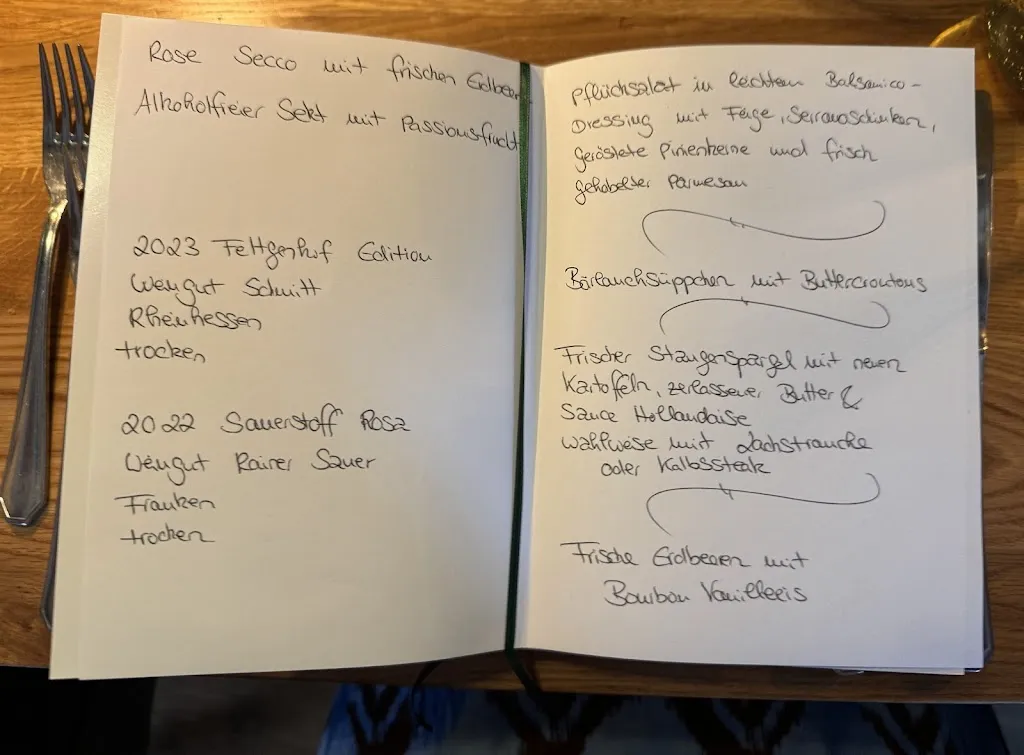 Rose Secco mit frischen Erdbeer
Alkoholfreier Sekt mit Passionsfrucht
2023 Fettgenhof Edition
Weingut Schmitt
Rheinhessen
trocken
2022 Sauerstoff Rosa
Weingut Rainer Sauer
Franken
trocken
Pflücksalat in leichtem Balsamico-
Dressing mit Feige, Serranoschinken,
geröstete Pinienkerne und frisch
gehobelter Parmesan
Bärlauchsüppchen mit Buttercroutons
Frischer Stangenspargel mit neuen
Kartoffeln, zerlassener Butter &
Sauce Hollandaise
wahlweise mit Lachstranche
oder Kalbssteak
Frische Erdbeeren mit
Bourbon Vanilleeis